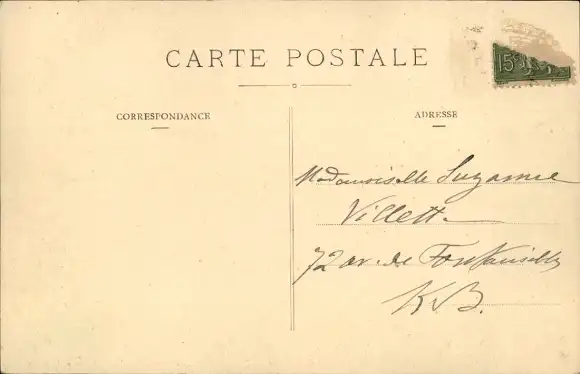 CARTE POSTALE
15c
CORRESPONDANCE
ADRESSE
Mademoiselle Suzanne
Villette
72 av. de
K B.